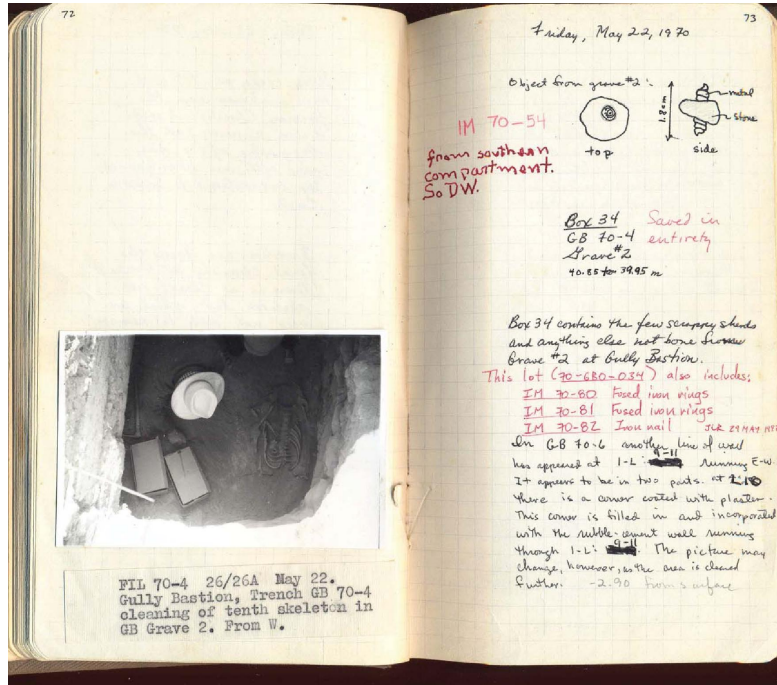 72
FIL 70-4 26/26A May 22.
Gully Bastion, Trench GB 70-4
cleaning of tenth skeleton in
GB Grave 2. From W.
73
Friday, May 22, 1970
Object from grave #2:
IM 70-54
from southern
compartment.
So DW.
top
1.8cm
metal
stone
side
Box 34
GB 70-4
Grave #2
40.85 to 39.95 m
Saved in
entirety
Box 34 contains the few scrappy sherds
and anything else not bone from
Grave #2 at Gully Bastion.
This lot (70-GBO-034) also includes:
IM 70-80 Fused iron rings
IM 70-81 Fused iron rings
IM 70-82 Iron nail
In GB 70-6 another line of wall
has appeared at 1-L: 9-11 running E-W.
It appears to be in two parts. at
there is a corner coated with plaster.
This corner is filled in and incorporated
with the rubble-cement wall running
through 1-L: 9-11. The picture may
change, however, as the area is cleared
further. -2.90 from surface